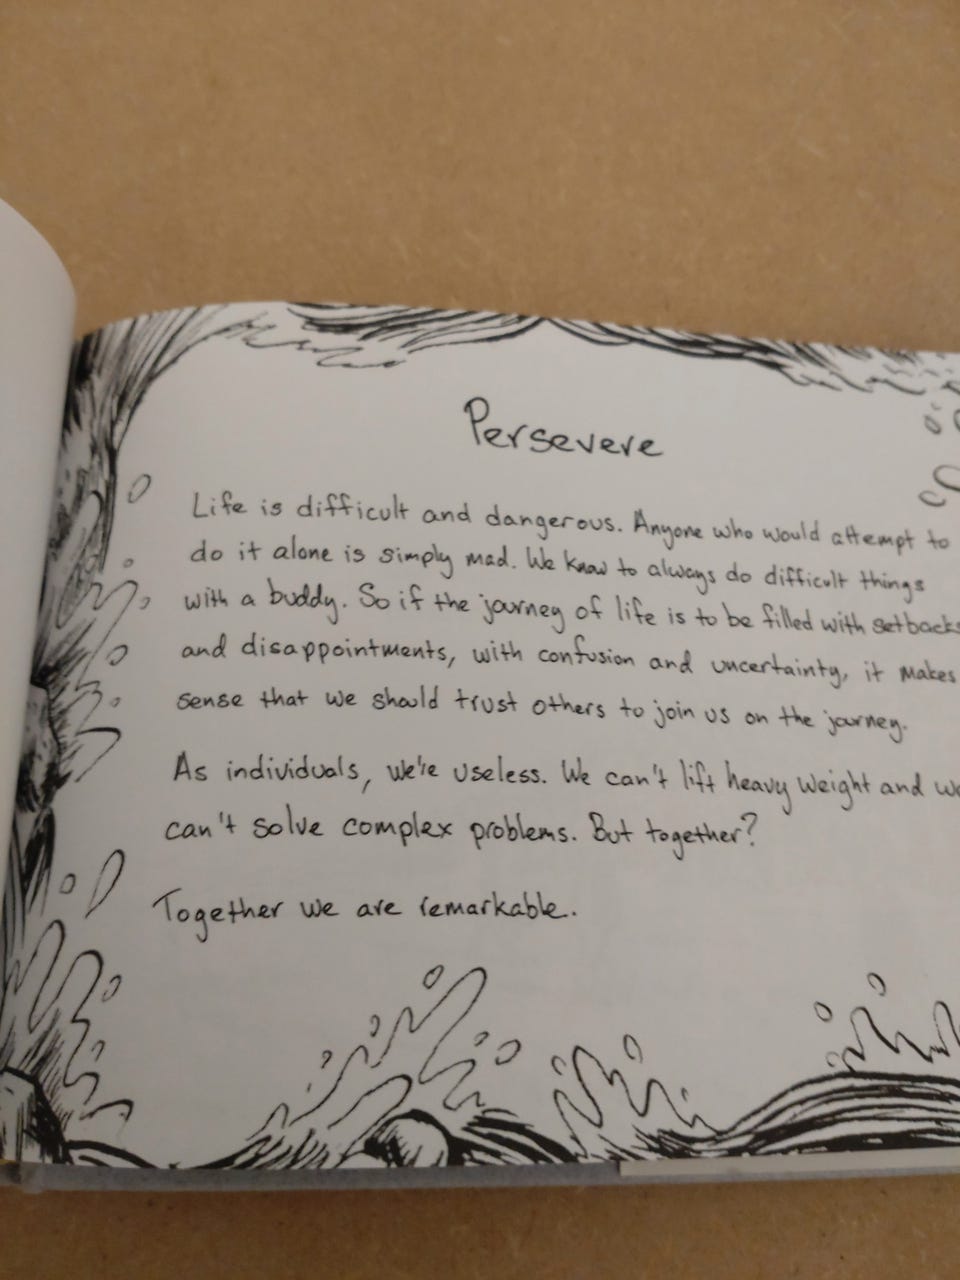 Persevere
Life is difficult and dangerous. Anyone who would attempt to
do it alone is simply mad. We know to always do difficult things
with a buddy. So if the journey of life is to be filled with setbacks
and disappointments, with confusion and uncertainty, it makes
sense that we should trust others to join us on the journey.
As individuals, we're useless. We can't lift heavy weight and we
can't solve complex problems. But together?
Together we are remarkable.